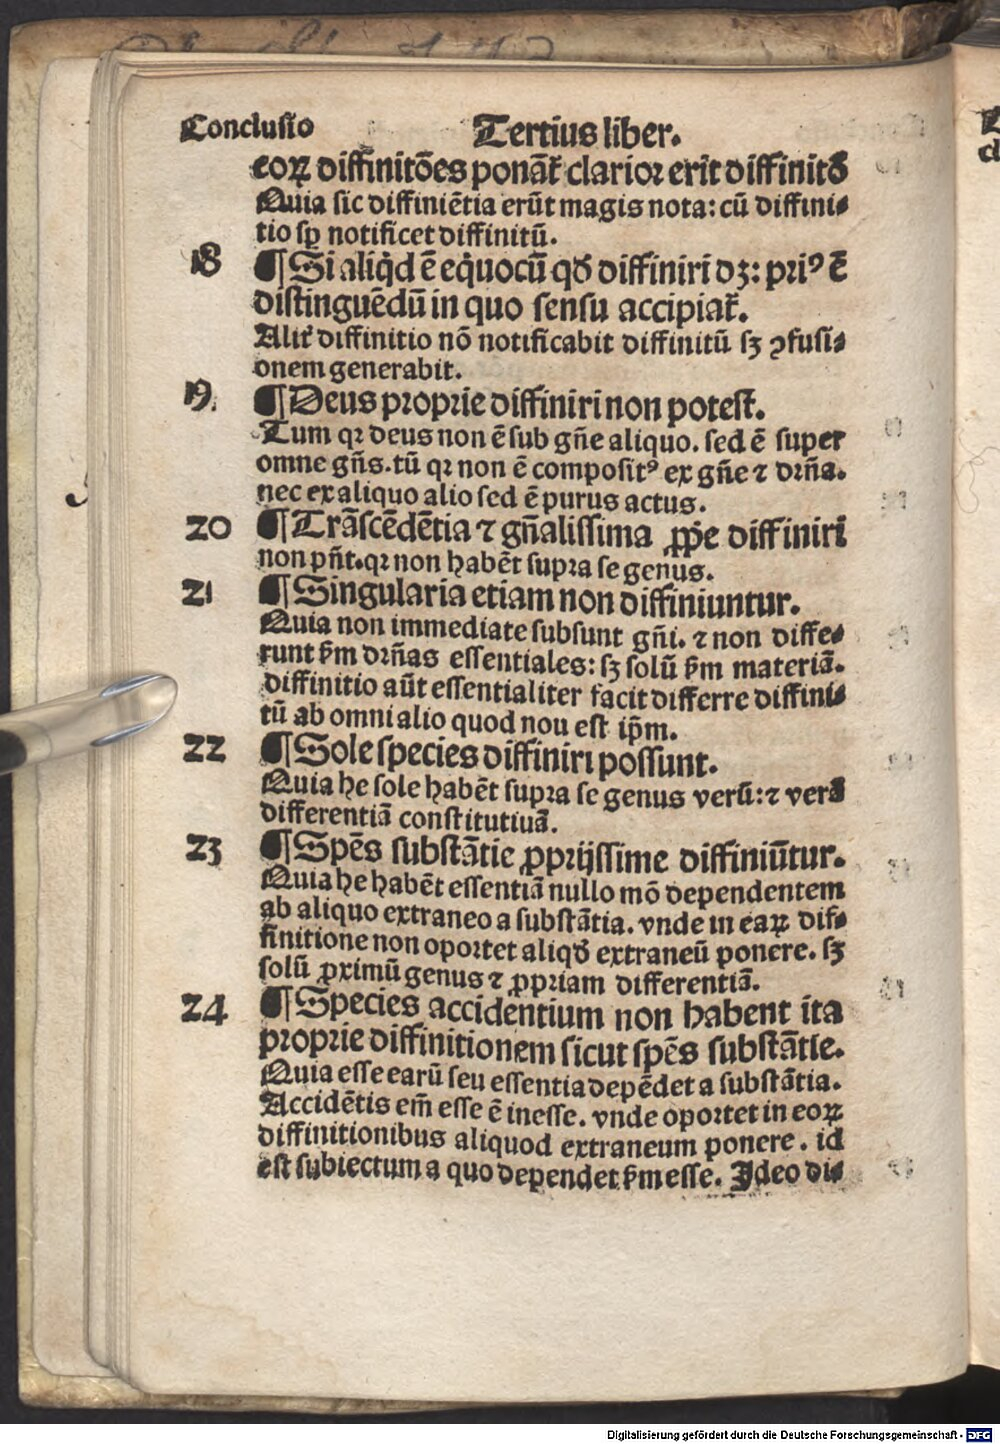 Conclusio Tertius liber.
eoꝝ diffinitōes ponāt̃ clarior erit diffinitō
Quia sic diffiniētia erūt magis nota: cū diffini⸗
tio sꝑ notificet diffinitū.
18 ¶ Si aliq̇d ē eq̇uocū qđ diffiniri dꝫ: priꝰ ē
distinguēdū in quo sensu accipiat̃.
Alit̃ diffinitio nō notificabit diffinitū sꝫ ꝯfusi⸗
onem generabit.
19. ¶ Deus proprie diffiniri non potest.
Tum qꝛ deus non ē sub gñe aliquo. sed ē super
omne gñs. tū qꝛ non ē compositꝰ ex gñe ⁊ drña.
nec ex aliquo alio sed ē purus actus.
20 ¶ Trāscēdētia ⁊ gñalissima ꝓpͥe diffiniri
non pñt. qꝛ non habēt supra se genus.
21 ¶ Singularia etiam non diffiniuntur.
Quia non immediate subsunt gñi. ⁊ non diffe⸗
runt ẜm drñas essentiales: sꝫ solū ẜm materiā.
diffinitio aūt essentialiter facit differre diffini⸗
tū ab omni alio quod nou est ip̄m.
22 ¶ Sole species diffiniri possunt.
Quia he sole habēt supra se genus verū: ⁊ verā
differentiā constitutiuā.
23 ¶ Spēs substātie ꝓprijssime diffiniūtur.
Quia he habēt essentiā nullo mō dependentem
ab aliquo extraneo a substātia. vnde in eaꝝ dif⸗
finitione non oportet aliqđ extraneū ponere. sꝫ
solū ꝓximū genus ⁊ ꝓpriam differentiā.
24 ¶ Species accidentium non habent ita
proprie diffinitionem sicut spēs substātie.
Quia esse earū seu essentia depēdet a substātia.
Accidētis em̄ esse ē inesse. vnde oportet in eoꝝ
diffinitionibus aliquod extraneum ponere. id
est subiectum a quo dependet ẜm esse. Ideo di⸗
Digitalisierung gefördert durch die Deutsche Forschungsgemeinschaft - DFG